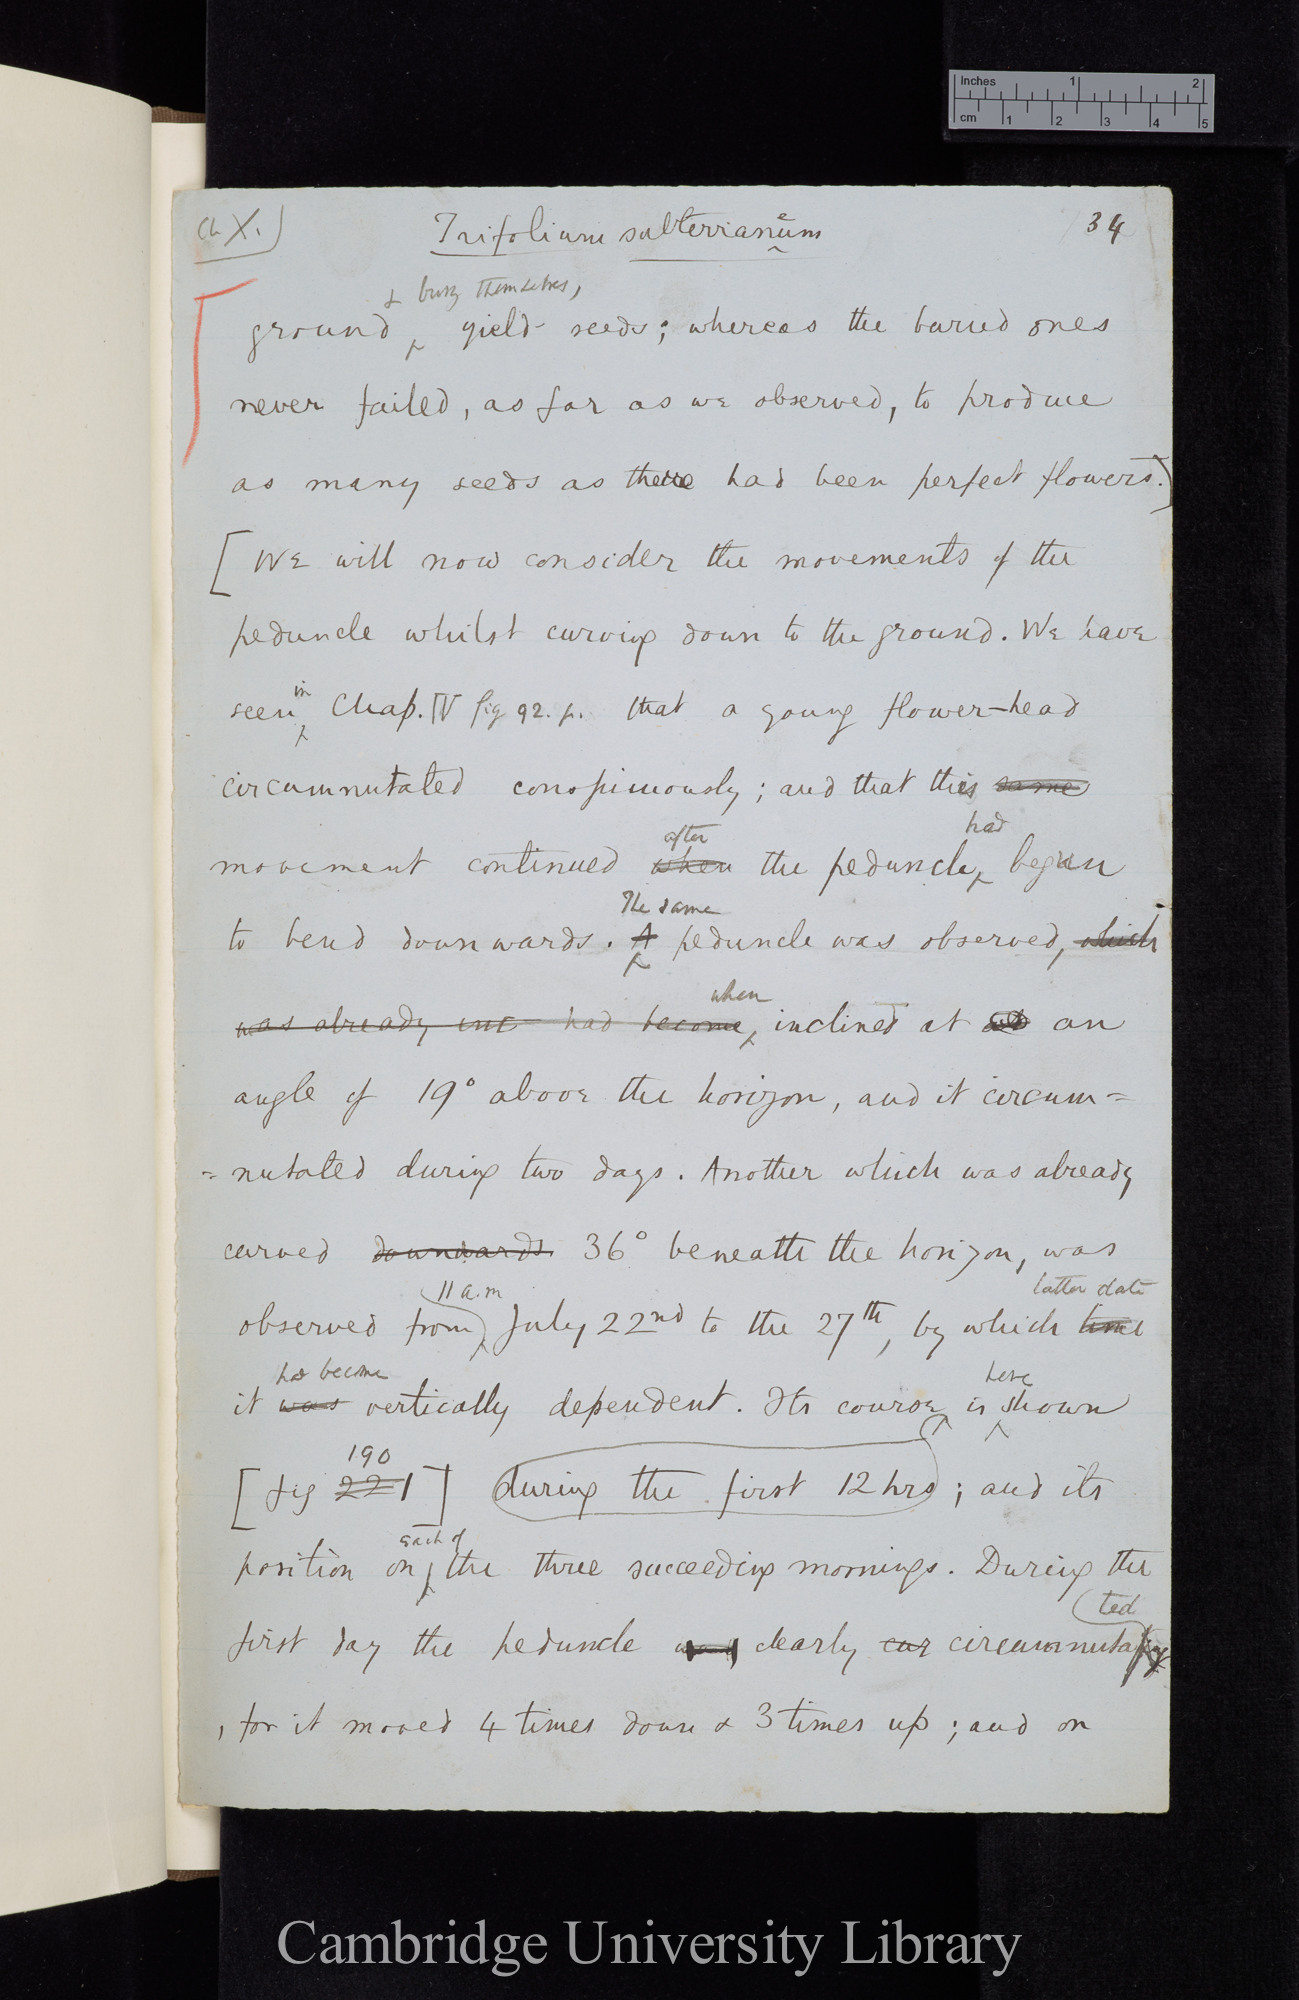 inches 1 2
cm 1 2 3 4 5
Ch X.
Trifolium subterraneum
34
& bury themselves,
ground yield seeds; whereas the buried ones
never failed, as far as we observed, to produce
as many seeds as there had been perfect flowers.)
[We will now consider the movements of the
peduncle whilst curving down to the ground. We have
in
seen Chap. IV fig 92. p. that a young flower-head
circumnutated conspicuously; and that this same
after had
movement continued when the peduncle began
The same
to bend downwards. A peduncle was observed, which
when
was already inc had become, inclined at an
angle of 19° above the horizon, and it circum=
=nutated during two days. Another which was already
curved downwards 36° beneath the horizon, was
11 a.m latter date
observed from July 22nd to the 27th, by which time
had become here
it was vertically dependent. Its course is shown
190
[fig 221] during the first 12 hrs; and its
each of
position on the three succeeding mornings. During the
ted
first day the peduncle was clearly cur circumnutating
, for it moved 4 times down & 3 times up; and on
Cambridge University Library